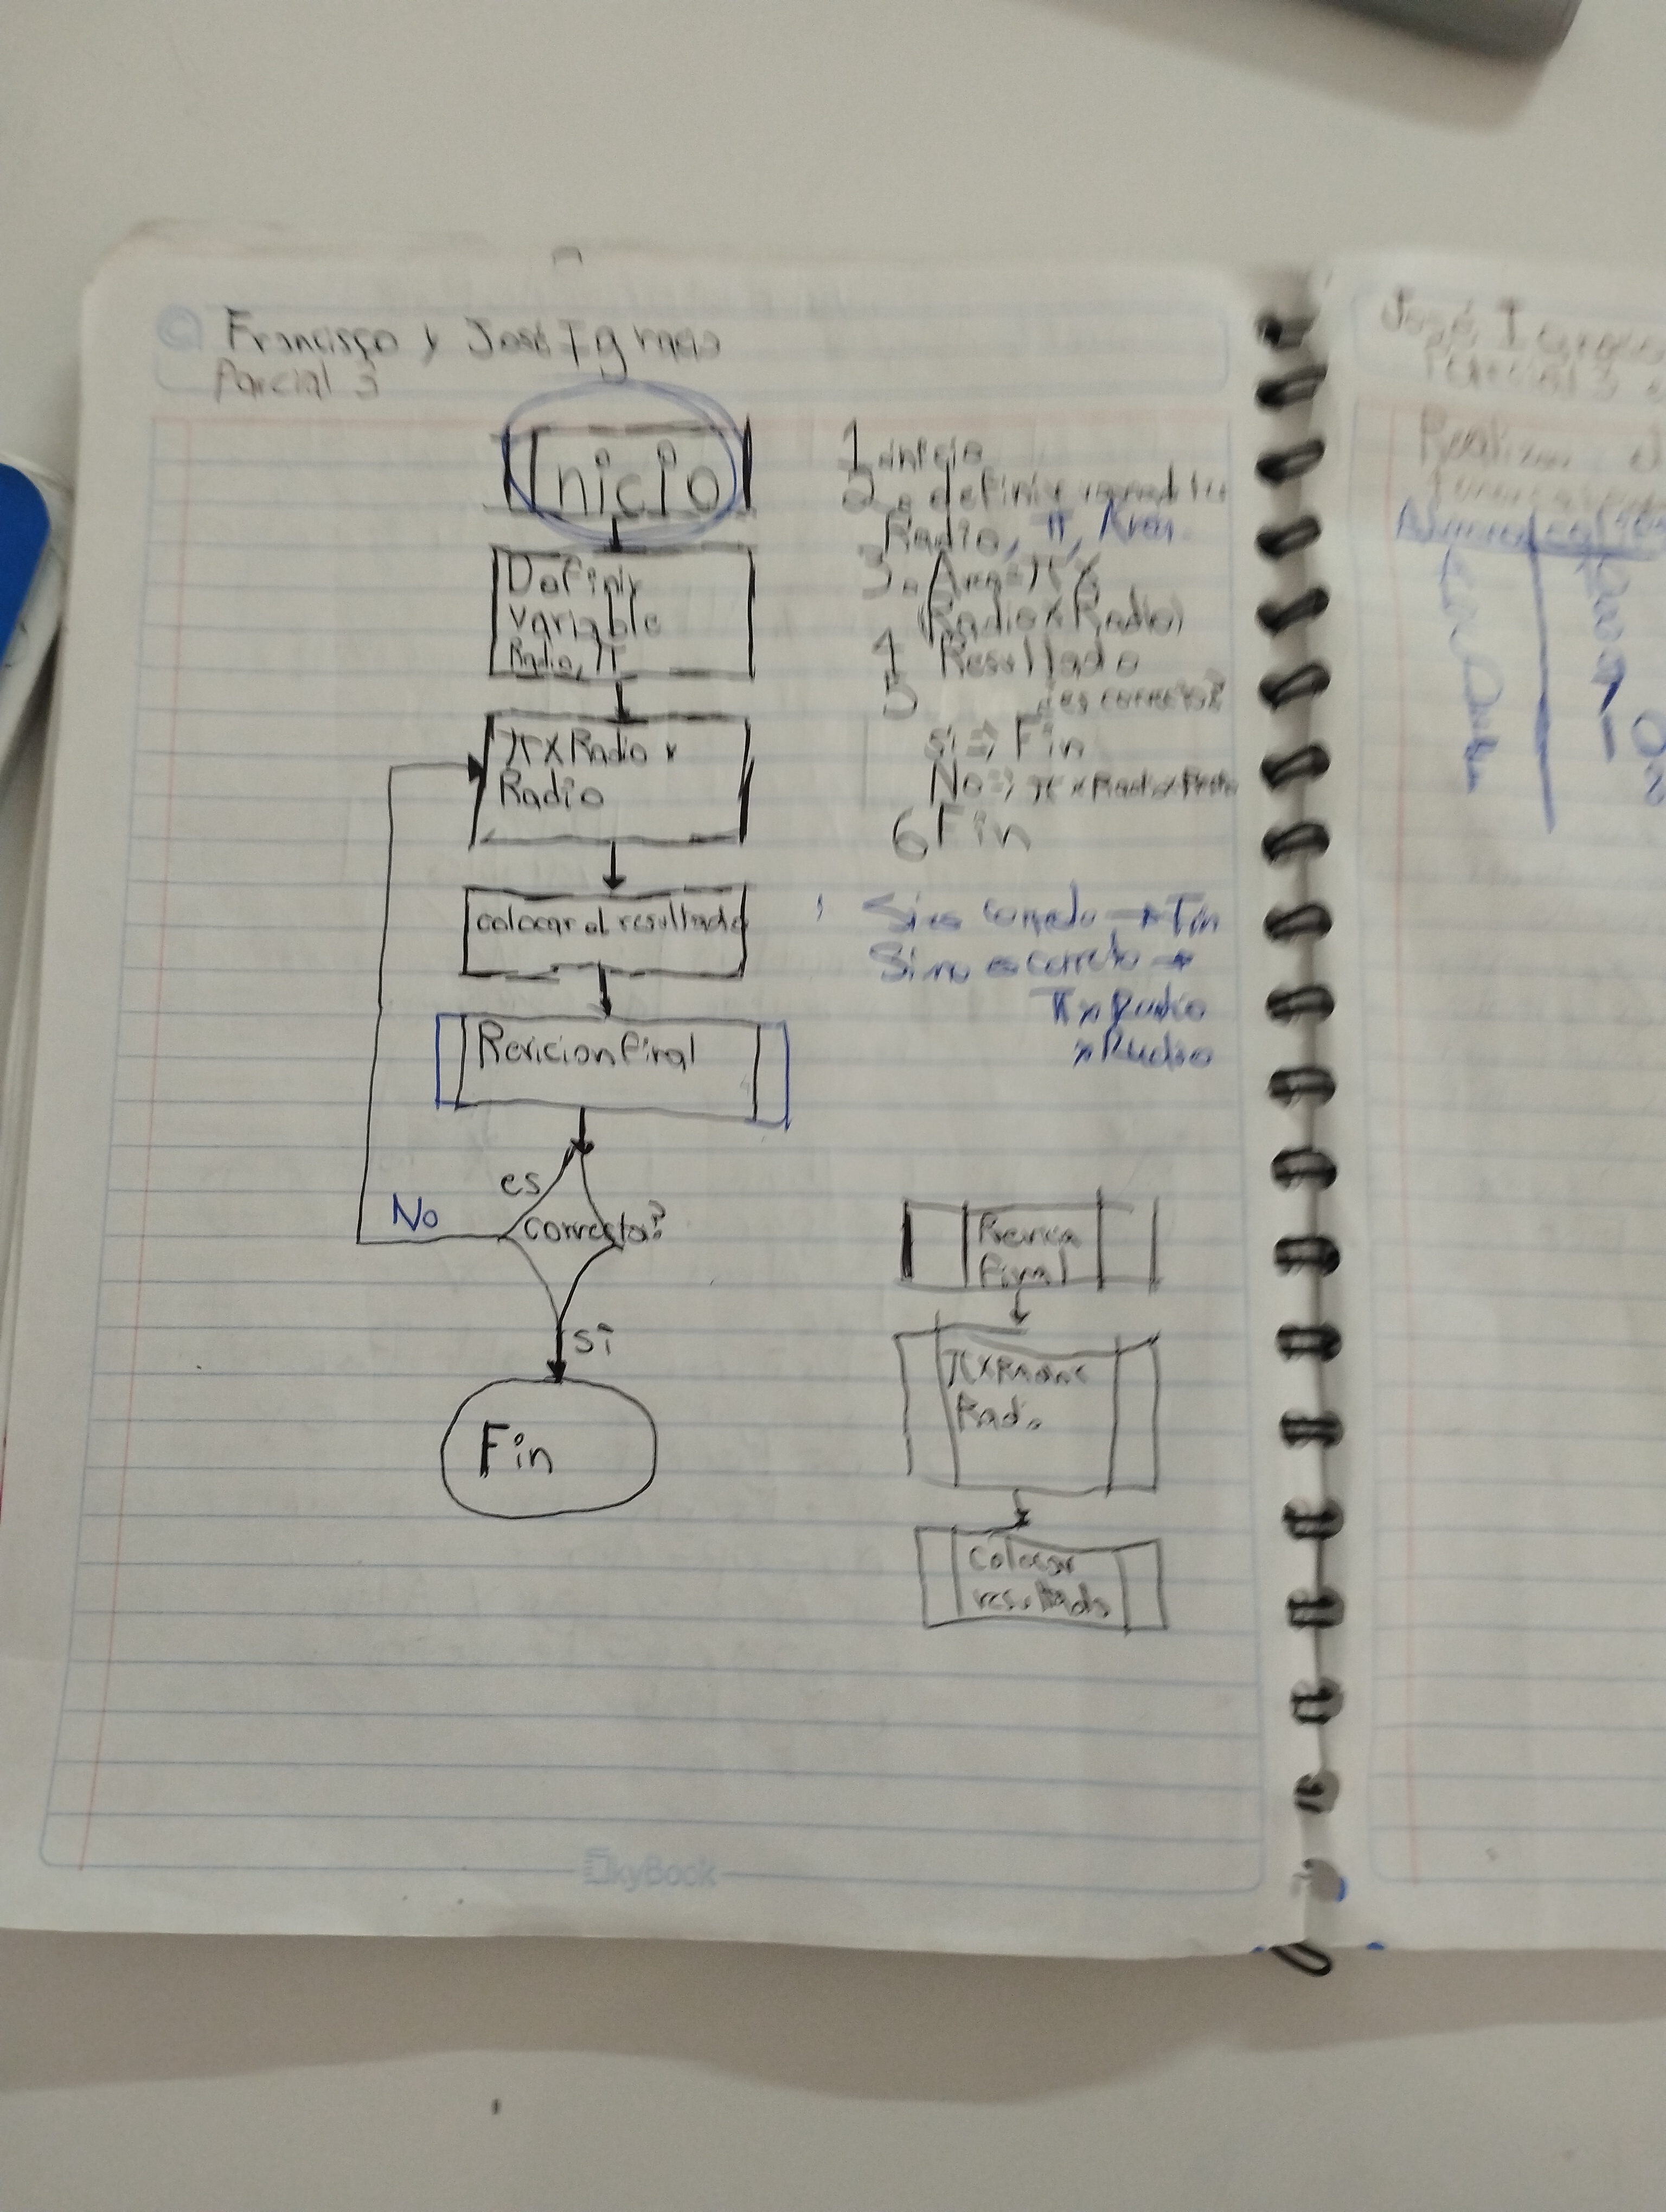 Francisco y José Ignacio
Parcial 3
Inicio
Definir
variable
Radio, π
π x Radio x
Radio
colocar el resultado
Revicion final
es
correcto?
No
si
Fin
1 inicio
2. definir variables
Radio, π, Área
3. Area = π x
(Radio x Radio)
4 Resultado
5 ¿es correcto?
si => Fin
No => π x Radio x Radio
6 Fin
Si es correcto → Fin
Si no es correcto →
π x Radio
x Radio
final
π x Radio x
Radio
Colocar
resultado
SkyBook
José, Ignacio
Realizar